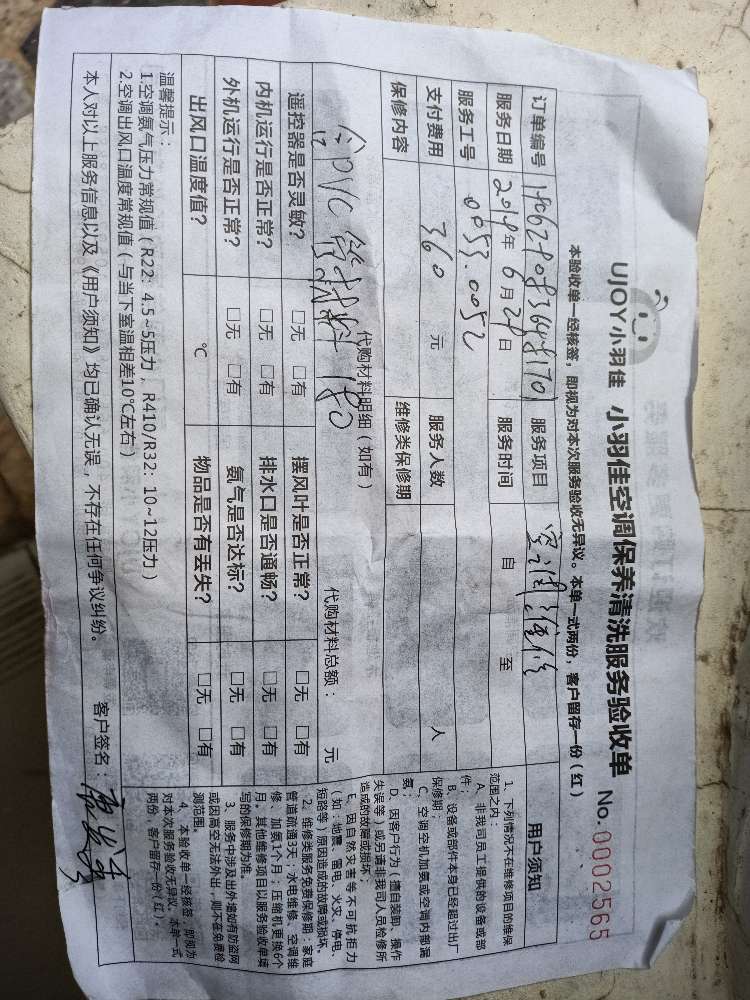 UJOY小羽佳 小羽佳空调保养清洗服务验收单 No.0002565
本验收单一经核签，即视为对本次服务验收无异议。本单一式两份，客户留存一份（红）
订单编号 服务项目 空调维修
服务日期 2019年6月29日 服务时间 自 至
服务工号 0053.0052
支付费用 360 元 服务人数 人
保修内容 维修类保修期
代购材料明细（如有） 代购材料总额： 元
PVC管材料 180
遥控器是否灵敏？ □无 □有 摆风叶是否正常？ □无 □有
内机运行是否正常？ □无 □有 排水口是否通畅？ □无 □有
外机运行是否正常？ □无 □有 氨气是否达标？ □无 □有
出风口温度值？ ℃ 物品是否有丢失？ □无 □有
温馨提示：
1.空调氨气压力常规值（R22：4.5~5压力，R410/R32：10~12压力）
2.空调出风口温度常规值（与当下室温相差10℃左右）
本人对以上服务信息以及《用户须知》均已确认无误，不存在任何争议纠纷。 客户签名：
用户须知
1、下列情况不在维修项目的维保
范围之内：
A、非我司员工提供的设备或部
件；
B、设备或部件本身已经超过出厂
保修期；
C、空调空机加氨或空调内部漏
氨；
D、因客户行为（擅自装卸、操作
失误等）或另请非我司人员检修所
造成的故障或损坏；
E、因自然灾害等不可抗拒力
（如：地震、雷电、火灾、停电、
短路等）原因造成的故障或损坏。
2、维修类服务免费保修期：家庭
管道疏通3天；水电维修、空调维
修、加氨1个月；压缩机更换6个
月。其他维修项目以服务验收单填
写的保修期为准。
3、服务中涉及出外墙如有防盗网
或因高空无法外出，则不在免费检
测范围。
4、本验收单一经核签，即视为
对本次服务验收无异议。本单一式
两份，客户留存一份（红）。